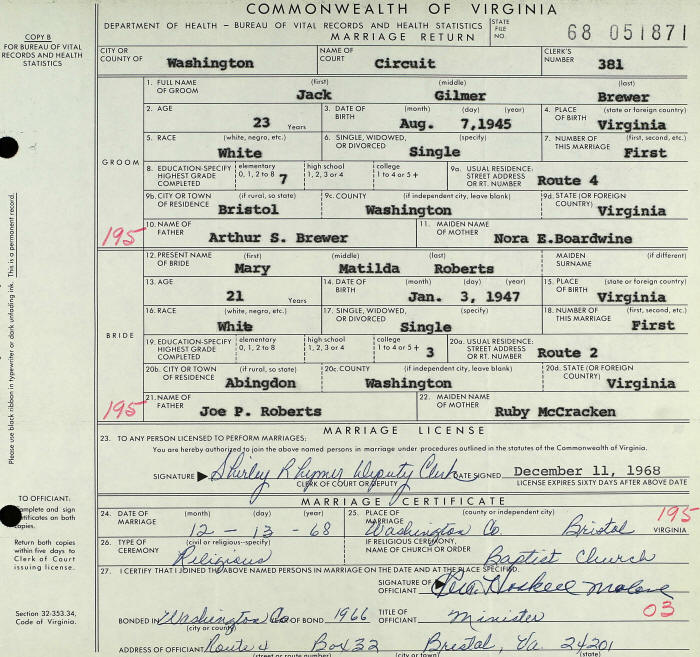 COMMONWEALTH OF VIRGINIA
DEPARTMENT OF HEALTH – BUREAU OF VITAL RECORDS AND HEALTH STATISTICS
MARRIAGE RETURN
STATE FILE NO. 68 051871
COPY B
FOR BUREAU OF VITAL
RECORDS AND HEALTH
STATISTICS
CITY OR COUNTY OF Washington NAME OF COURT Circuit CLERK'S NUMBER 381
GROOM
1. FULL NAME OF GROOM (first) Jack (middle) Gilmer (last) Brewer
2. AGE 23 Years 3. DATE OF BIRTH (month) (day) (year) Aug. 7,1945 4. PLACE OF BIRTH (state or foreign country) Virginia
5. RACE (white, negro, etc.) White 6. SINGLE, WIDOWED, OR DIVORCED (specify) Single 7. NUMBER OF THIS MARRIAGE (first, second, etc.) First
8. EDUCATION-SPECIFY HIGHEST GRADE COMPLETED elementary 0, 1, 2 to 8 7 high school 1, 2, 3 or 4 college 1 to 4 or 5+ 9a. USUAL RESIDENCE: STREET ADDRESS OR RT. NUMBER Route 4
9b. CITY OR TOWN OF RESIDENCE (if rural, so state) Bristol 9c. COUNTY (if independent city, leave blank) Washington 9d. STATE (OR FOREIGN COUNTRY) Virginia
195 10. NAME OF FATHER Arthur S. Brewer 11. MAIDEN NAME OF MOTHER Nora E.Boardwine
BRIDE
12. PRESENT NAME OF BRIDE (first) Mary (middle) Matilda (last) Roberts MAIDEN SURNAME (if different)
13. AGE 21 Years 14. DATE OF BIRTH (month) (day) (year) Jan. 3, 1947 15. PLACE OF BIRTH (state or foreign country) Virginia
16. RACE (white, negro, etc.) White 17. SINGLE, WIDOWED, OR DIVORCED (specify) Single 18. NUMBER OF THIS MARRIAGE (first, second, etc.) First
19. EDUCATION-SPECIFY HIGHEST GRADE COMPLETED elementary 0, 1, 2 to 8 high school 1, 2, 3 or 4 college 1 to 4 or 5+ 3 20a. USUAL RESIDENCE: STREET ADDRESS OR RT. NUMBER Route 2
20b. CITY OR TOWN OF RESIDENCE (if rural, so state) Abingdon 20c. COUNTY (if independent city, leave blank) Washington 20d. STATE (OR FOREIGN COUNTRY) Virginia
195 21. NAME OF FATHER Joe P. Roberts 22. MAIDEN NAME OF MOTHER Ruby McCracken
Please use black ribbon in typewriter or dark unfading ink. This is a permanent record.
MARRIAGE LICENSE
23. TO ANY PERSON LICENSED TO PERFORM MARRIAGES:
You are hereby authorized to join the above named persons in marriage under procedures outlined in the statutes of the Commonwealth of Virginia.
SIGNATURE Shirley Rhymer Deputy Clerk DATE SIGNED December 11, 1968
CLERK OF COURT OR DEPUTY LICENSE EXPIRES SIXTY DAYS AFTER ABOVE DATE
MARRIAGE CERTIFICATE
TO OFFICIANT:
Complete and sign
certificates on both
copies.
Return both copies
within five days to
Clerk of Court
issuing license.
Section 32-353.34,
Code of Virginia.
24. DATE OF MARRIAGE (month) (day) (year) 12 - 13 - 68 25. PLACE OF MARRIAGE (county or independent city) Washington Co. Bristol VIRGINIA 195
26. TYPE OF CEREMONY (civil or religious--specify) Religious IF RELIGIOUS CEREMONY, NAME OF CHURCH OR ORDER Baptist Church
27. I CERTIFY THAT I JOINED THE ABOVE NAMED PERSONS IN MARRIAGE ON THE DATE AND AT THE PLACE SPECIFIED.
SIGNATURE OF OFFICIANT Haskell Malone
03
BONDED IN Washington Co (city or county) YEAR OF BOND 1966 TITLE OF OFFICIANT Minister
ADDRESS OF OFFICIANT Route 4 Box 32 Bristol, Va. 24201
(street or route number) (city or town) (state)